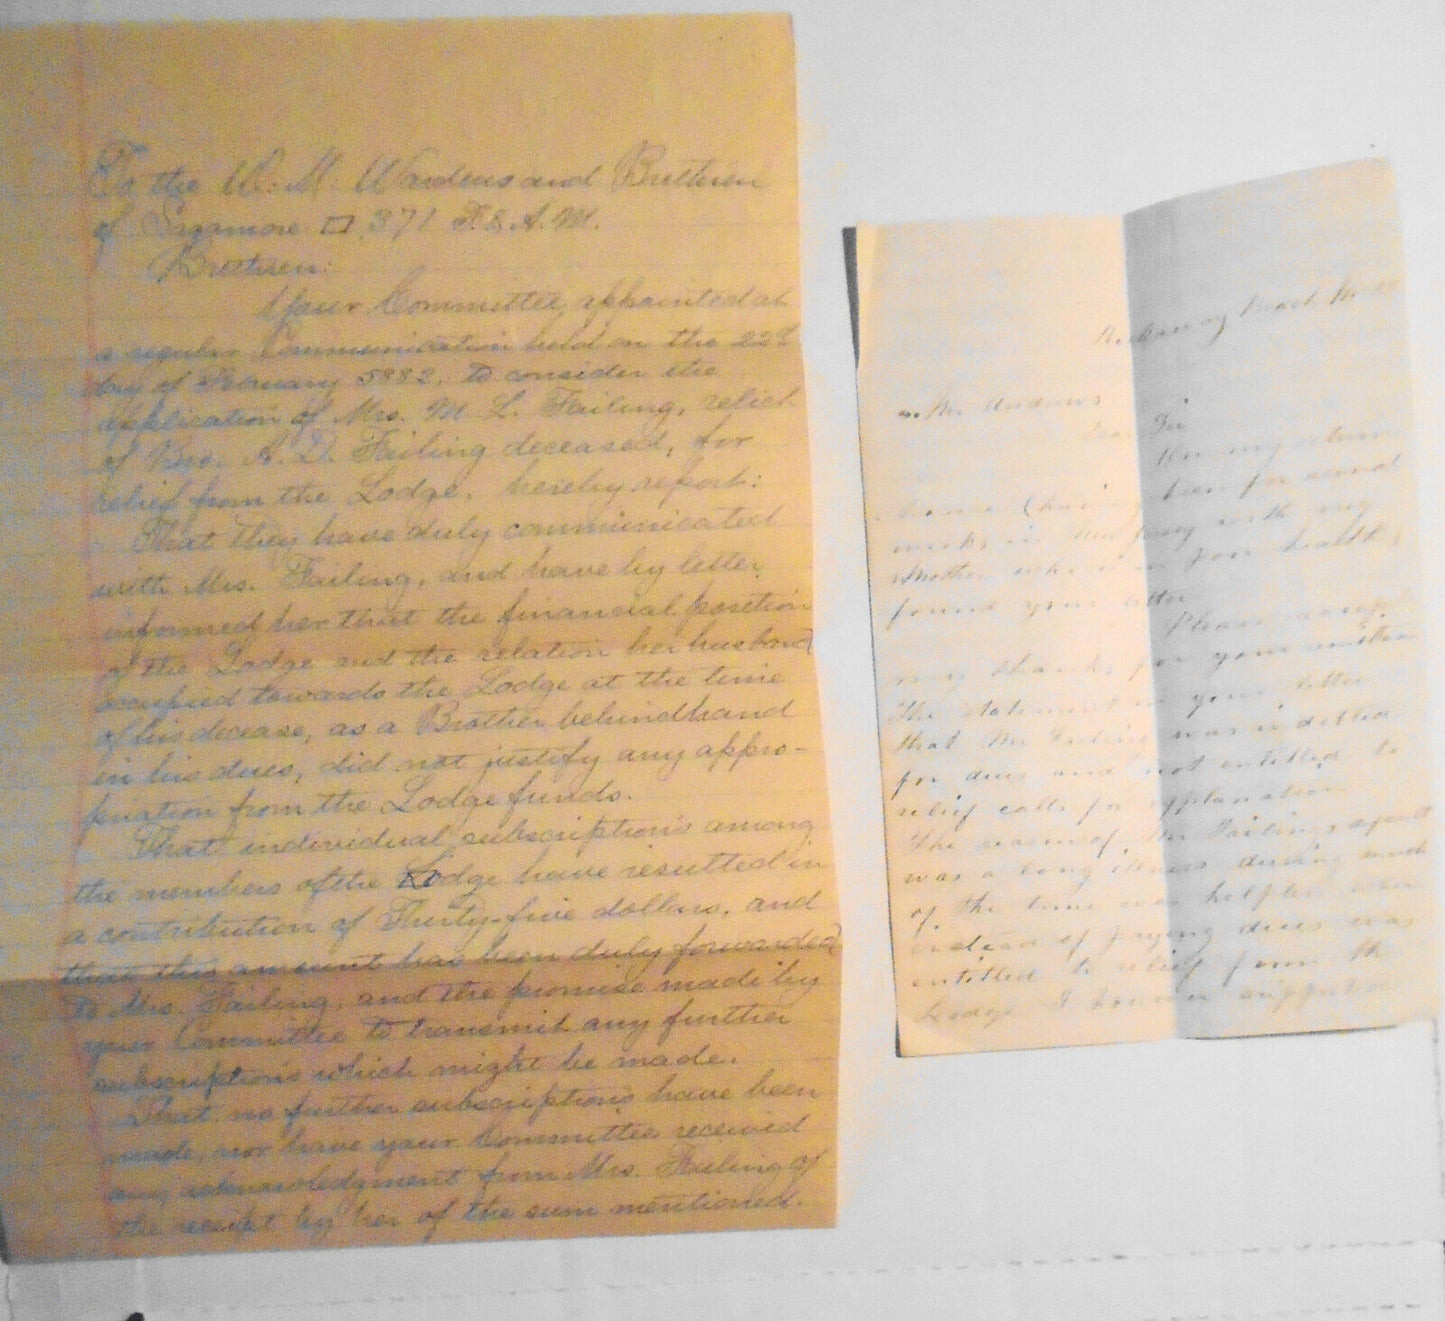 To the W. M. Wardens and Brethren
of Sagamore ▭ 371 F. & A. M.
Brethren:
Your Committee, appointed at
a regular Communication held on the 22d
day of February 5882, to consider the
application of Mrs. M. L. Failing, relict
of Bro. A. D. Failing deceased, for
relief from the Lodge, hereby report:
That they have duly communicated
with Mrs. Failing, and have by letter
informed her that the financial position
of the Lodge and the relation her husband
occupied towards the Lodge at the time
of his decease, as a Brother behindhand
in his dues, did not justify any appro-
priation from the Lodge funds.
That individual subscriptions among
the members of the Lodge have resulted in
a contribution of Thirty-five dollars, and
that this amount has been duly forwarded
to Mrs. Failing, and the promise made by
your Committee to transmit any further
subscriptions which might be made.
That no further subscriptions have been
made, nor have your Committee received
any acknowledgment from Mrs. Failing of
the receipt by her of the sum mentioned.
Rockaway Beach
Mr Andrews
Dear Sir
On my return
home (having been for several
weeks in New Jersey with my
Mother who is in poor health,)
found your letter
Please accept
my thanks for your
The statement in your letter
that Mr Failing was indebted
for dues and not entitled to
relief calls for explanation
The reason of Mr Failings
was a long illness during much
of the time was helpless
instead of paying dues was
entitled to relief from the
Lodge I